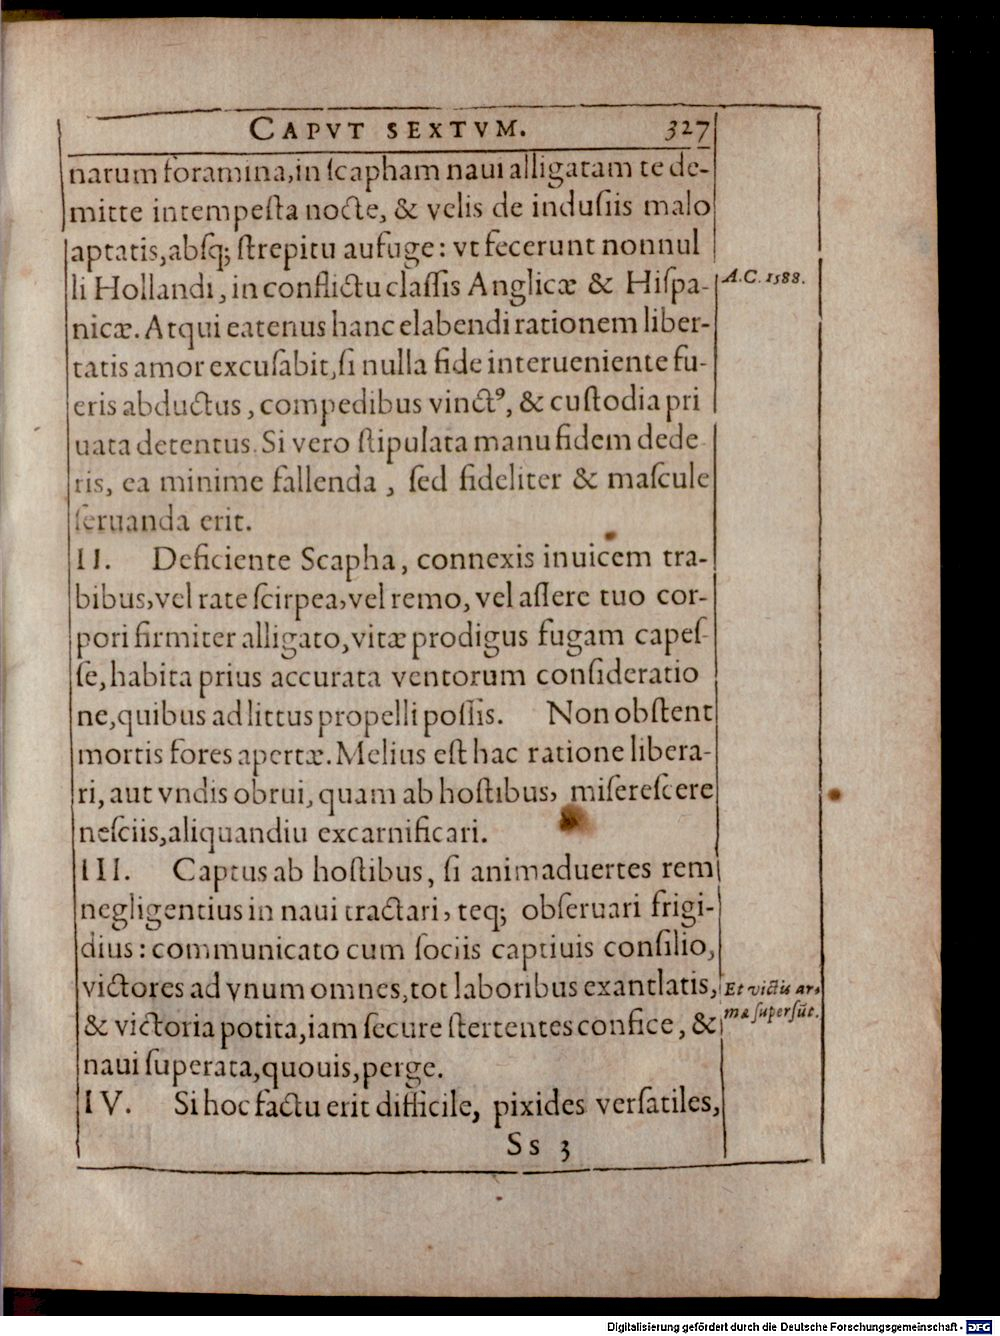 CAPVT SEXTVM. 327
narum foramina,in ſcapham naui alligatam te de-
mitte intempeſta nocte, & velis de induſiis malo
aptatis,abſq; ſtrepitu aufuge: vt fecerunt nonnul
li Hollandi, in conflictu claſſis Anglicæ & Hiſpa-
A.C. 1588.
nicæ. Atqui eatenus hanc elabendi rationem liber-
tatis amor excuſabit,ſi nulla fide interueniente fu-
eris abductus, compedibus vinctꝰ, & cuſtodia pri
uata detentus. Si vero ſtipulata manu fidem dede
ris, ea minime fallenda, ſed fideliter & maſcule
ſeruanda erit.
II. Deficiente Scapha, connexis inuicem tra-
bibus,vel rate ſcirpea,vel remo, vel aſſere tuo cor-
pori firmiter alligato,vitæ prodigus fugam capeſ-
ſe,habita prius accurata ventorum conſideratio
ne,quibus ad littus propelli poſſis. Non obſtent
mortis fores apertæ. Melius eſt hac ratione libera-
ri, aut vndis obrui, quam ab hoſtibus, miſereſcere
neſciis,aliquandiu excarnificari.
III. Captus ab hoſtibus, ſi animaduertes rem
negligentius in naui tractari, teq; obſeruari frigi-
dius: communicato cum ſociis captiuis conſilio,
victores ad vnum omnes,tot laboribus exantlatis,
Et victis ar-
& victoria potita,iam ſecure ſtertentes confice, &
ma ſuperſūt.
naui ſuperata,quouis,perge.
IV. Si hoc factu erit difficile, pixides verſatiles,
Ss 3
Digitalisierung gefördert durch die Deutsche Forschungsgemeinschaft - DFG